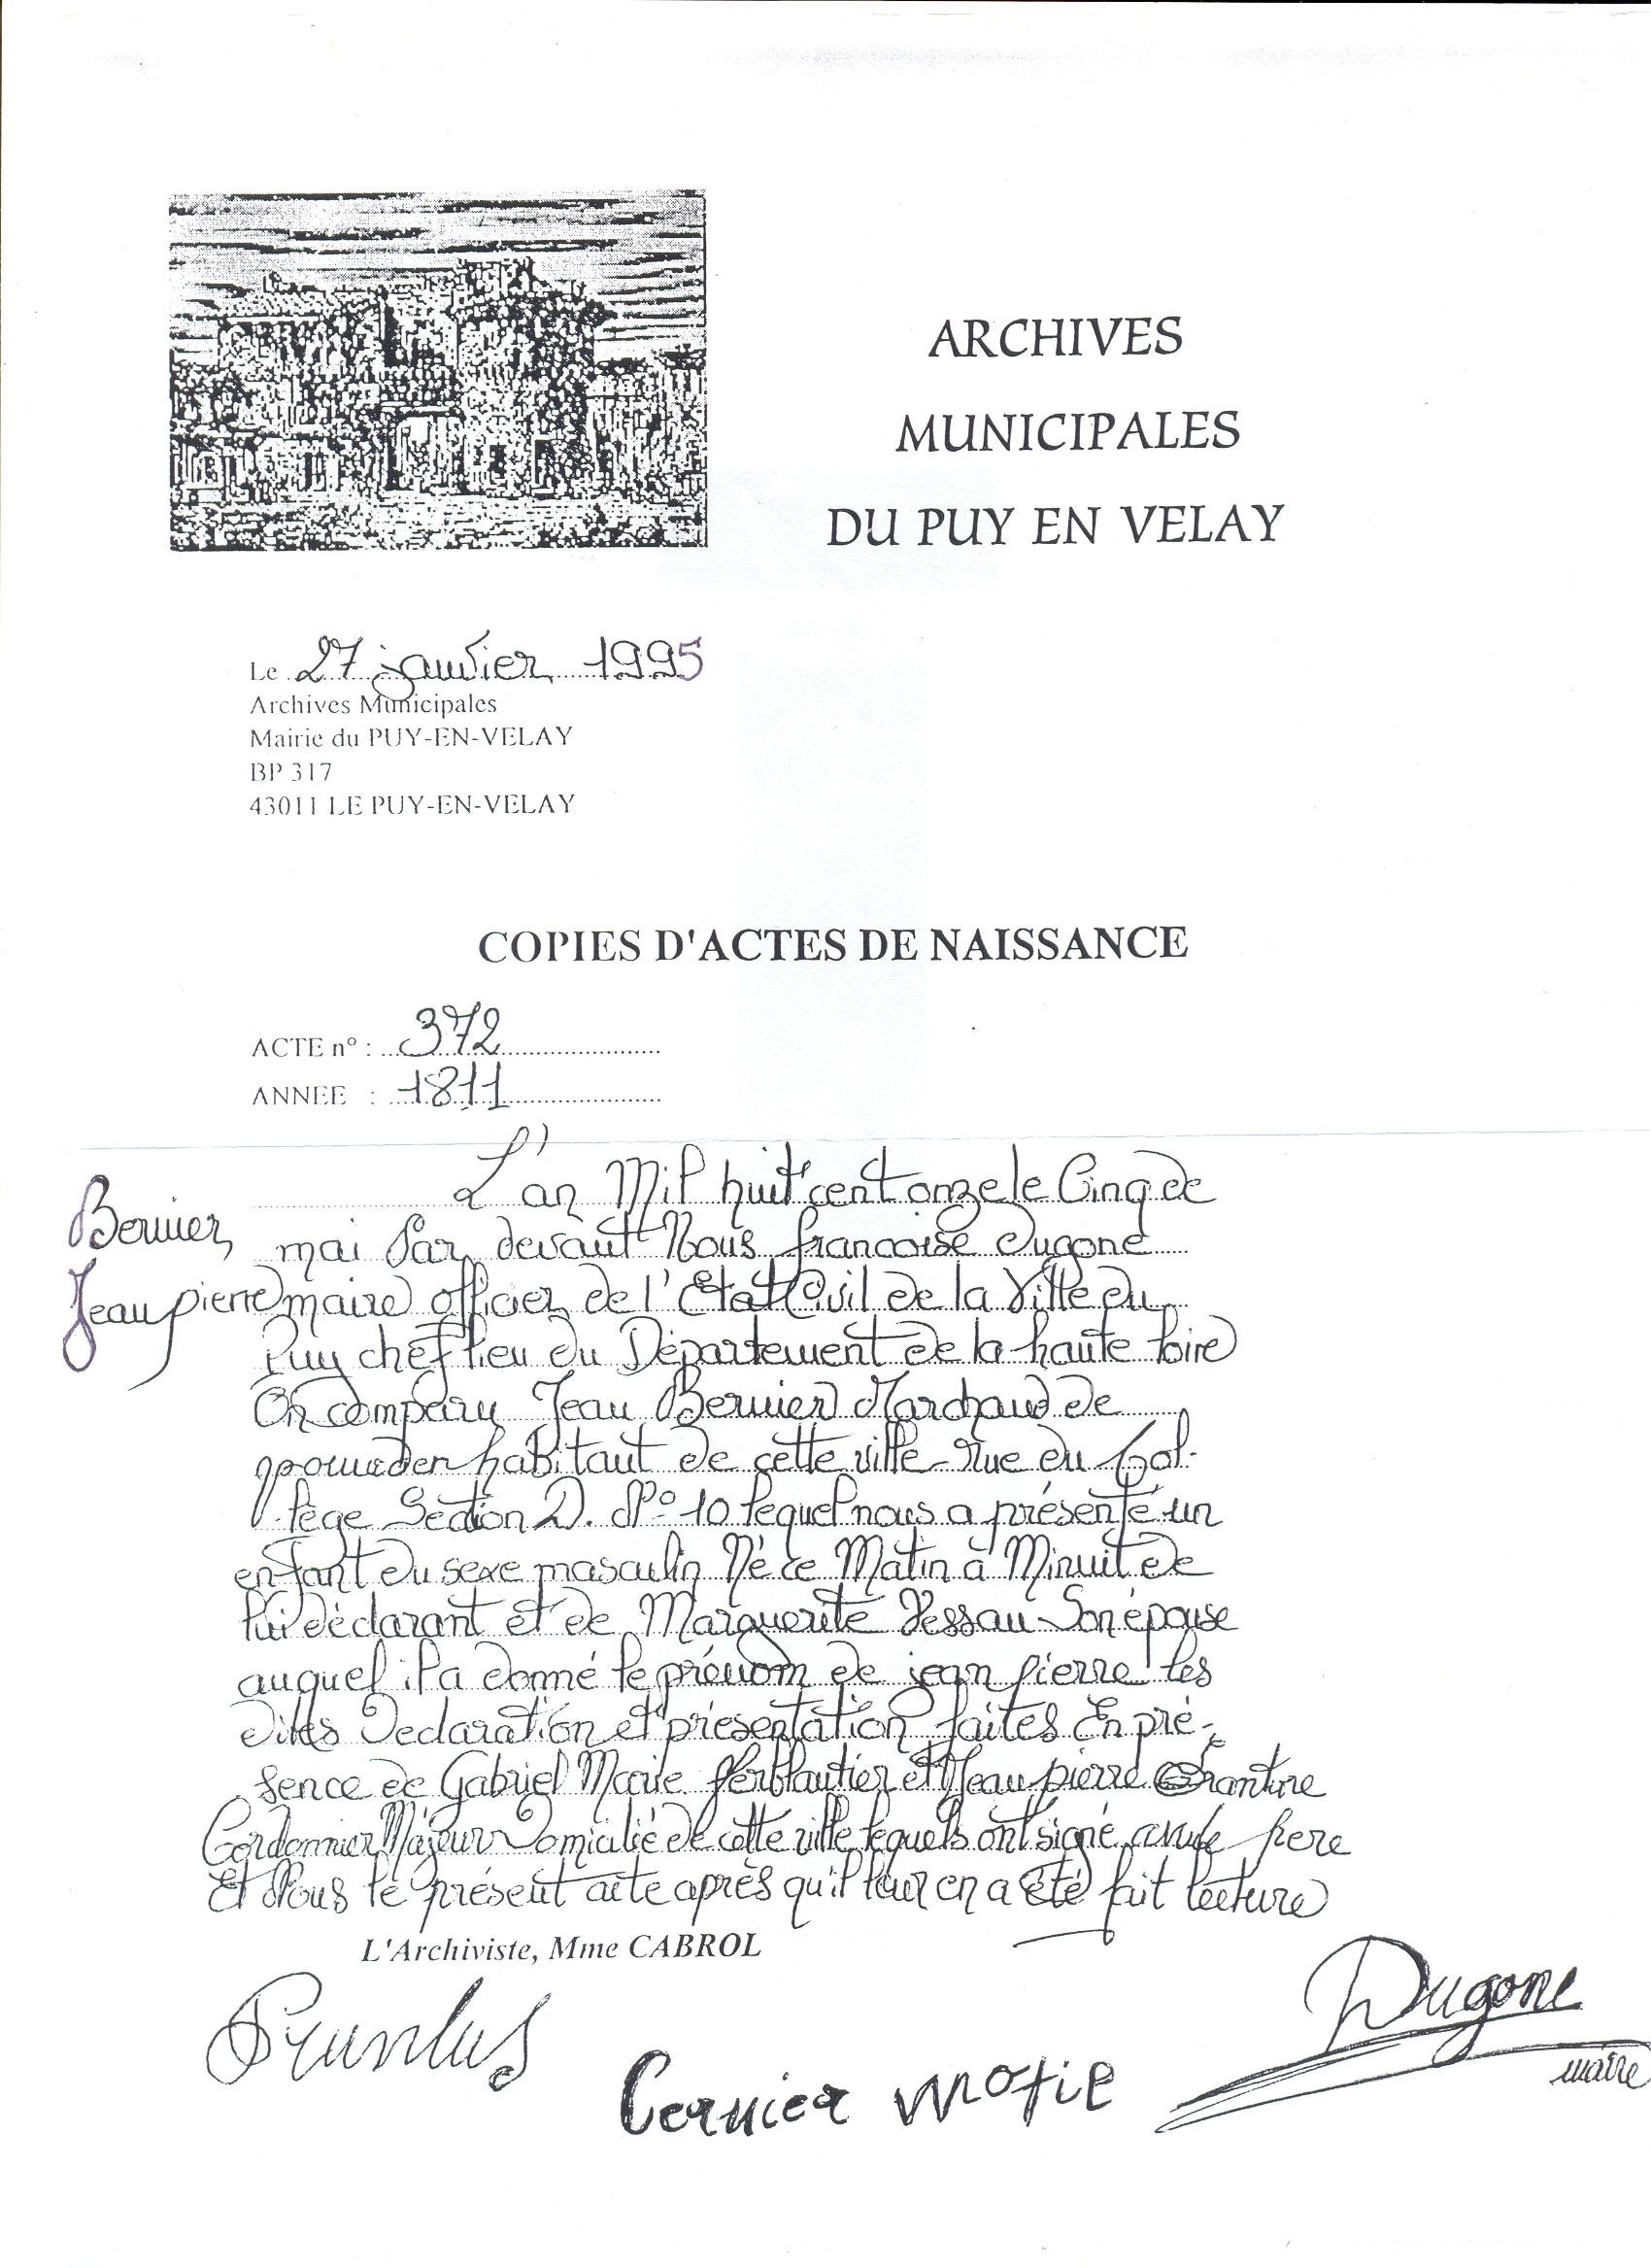 ARCHIVES
MUNICIPALES
DU PUY EN VELAY
Le 27 janvier 1995
Archives Municipales
Mairie du PUY-EN-VELAY
BP 317
43011 LE PUY-EN-VELAY
COPIES D'ACTES DE NAISSANCE
ACTE n° : 372
ANNEE : 1811
Bernier
Jean pierre
L'an Mil huit cent onze le Cinq de
mai Par devant Nous francoise Dugone
maire officier de l'Etat Civil de la Ville du
Puy chef lieu du Département de la haute loire
On comparu Jean Bernier Marchand de
habitant de cette ville rue du Col-
lège Section D. N° 10 lequel nous a présenté un
enfant du sexe masculin Né ce Matin à Minuit de
lui déclarant et de Marguerite Vessau Son épouse
auquel il a donné le prénom de jean pierre les
dites Declaration et présentation faites En pré-
sence de Gabriel Marie ferblantier et Jean pierre
Cordonnier Majeur Domicilié de cette ville lequels ont signé avec le pere
Et Nous le présent acte après qu'il leur en a été fait lecture
L'Archiviste, Mme CABROL
Dugone
maire
Bernier